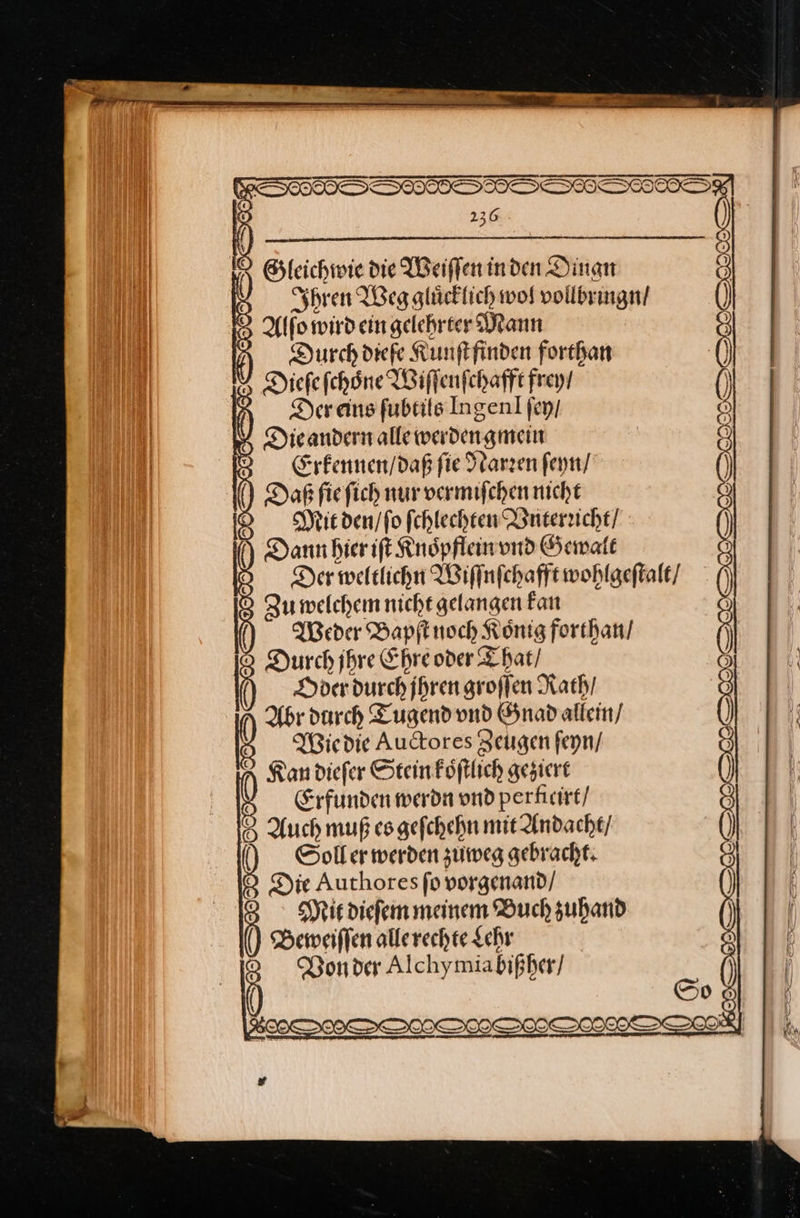 236
Gleichwie die Weiſſen in den Dingn
Ihren Weg glücklich wol vollbringn/
Alſo wird ein gelehrter Mann
Durch dieſe Kunſt finden forthan
Dieſe ſchöne Wiſſenſchafft frey/
Der eins ſubtils IngenI ſey/
Die andern alle werden gmein
Erkennen/daß ſie Narren ſeyn/
Daß ſie ſich nur vermiſchen nicht
Mit den/ſo ſchlechten Vnterricht/
Dann hier iſt Knöpflein vnd Gewalt
Der weltlichn Wiſſnſchafft wohlgeſtalt/
Zu welchem nicht gelangen kan
Weder Bapſt noch König forthan/
Durch jhre Ehre oder That/
Oder durch jhren groſſen Rath/
Abr durch Tugend vnd Gnad allein/
Wie die Auctores Zeugen ſeyn/
Kan dieſer Stein köſtlich geziert
Erfunden werdn vnd perficirt/
Auch muß es geſchehn mit Andacht/
Soll er werden zuweg gebracht.
Die Authores ſo vorgenand/
Mit dieſem meinem Buch zuhand
Beweiſſen alle rechte Lehr
Von der Alchymia bißher/
So